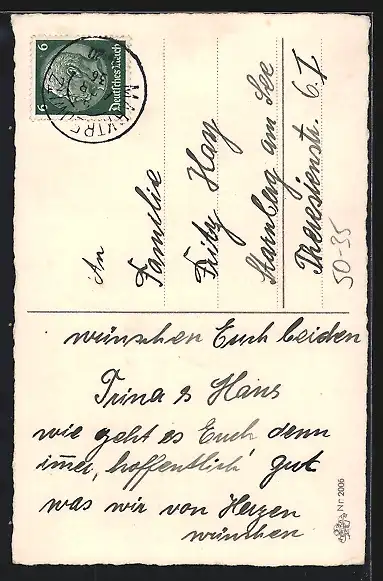 6 6
Deutsches Reich
An
Familie
Fritz Hay
Starnberg am See
Theresienstr. 6. I
50-35
wünschen Euch beiden
Trina & Hans
wie geht es Euch denn
immer, hoffentlich gut
was wir von Herzen
wünschen
Nr 2006